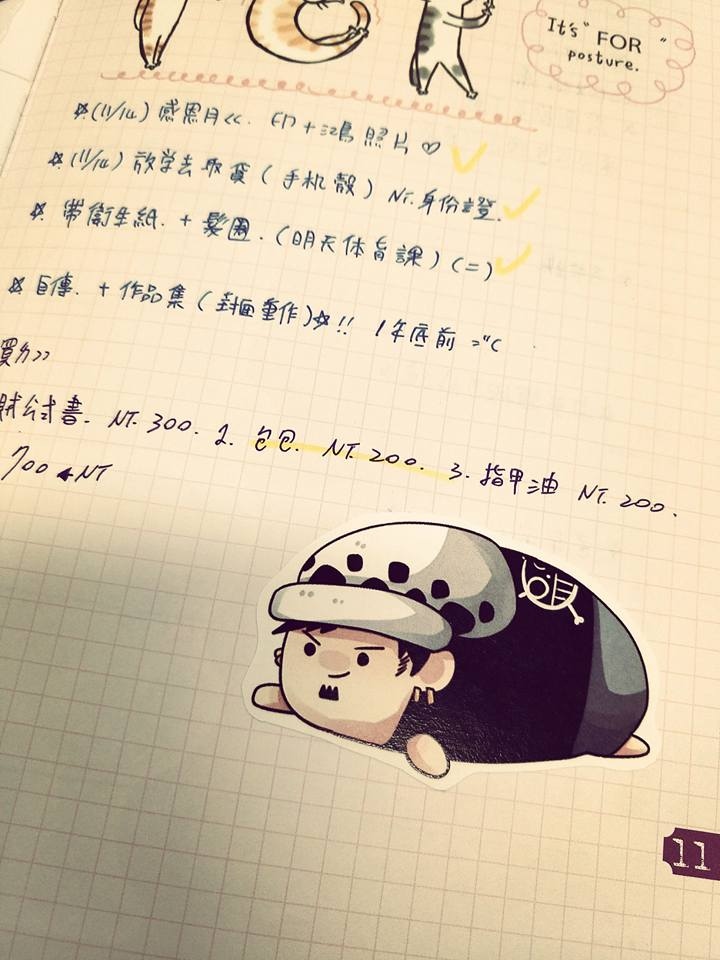 It's "FOR"
posture.
☆(11/14) 感恩月<<. 印+鴻照片♡
☆(11/14) 放学去取貨(手机殼) NT.身份證.
☆ 帶衛生紙.+髮圈.(明天体育課)(二)
☆ 自傳.+作品集(封面重作)☆!! 1年底前
買 >>
書. NT.300. 2. 包包. NT.200. 3.指甲油 NT.200.
700 NT
11